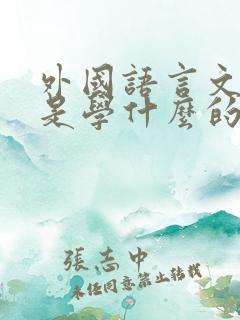 外國語言文
是學什麼的
張志中
未經同意禁止轉載